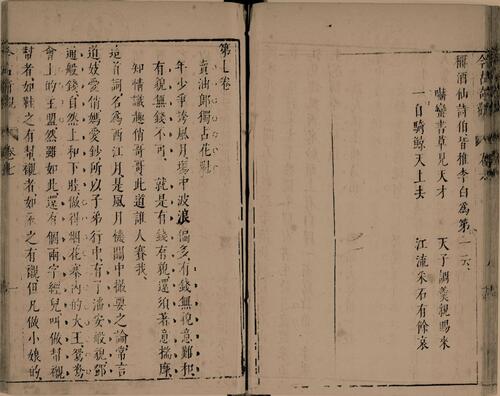 稱酒仙詩伯皆推李白爲第一云
嚇蠻書草見天才　天子調羹親賜來
一自騎鯨天上去　江流采石有餘哀
第七卷
賣油郎獨占花魁
年少爭誇風月場中波浪偏多有錢無貌意難和
有貌無錢不可　就是有錢有貌還須著意揣摩
知情識趣俏哥哥此道誰人賽我
這首詞名爲西江月是風月機關中撮要之論常言
道妓愛俏媽愛鈔所以子弟行中有了潘安般貌鄧
通般錢自然上和下睦做得烟花寨內的大王鴛鴦
會上的主盟然雖如此還有個兩字經兒叫做幫襯
幫者如鞋之有幫襯者如衣之有襯但凡做小娘的